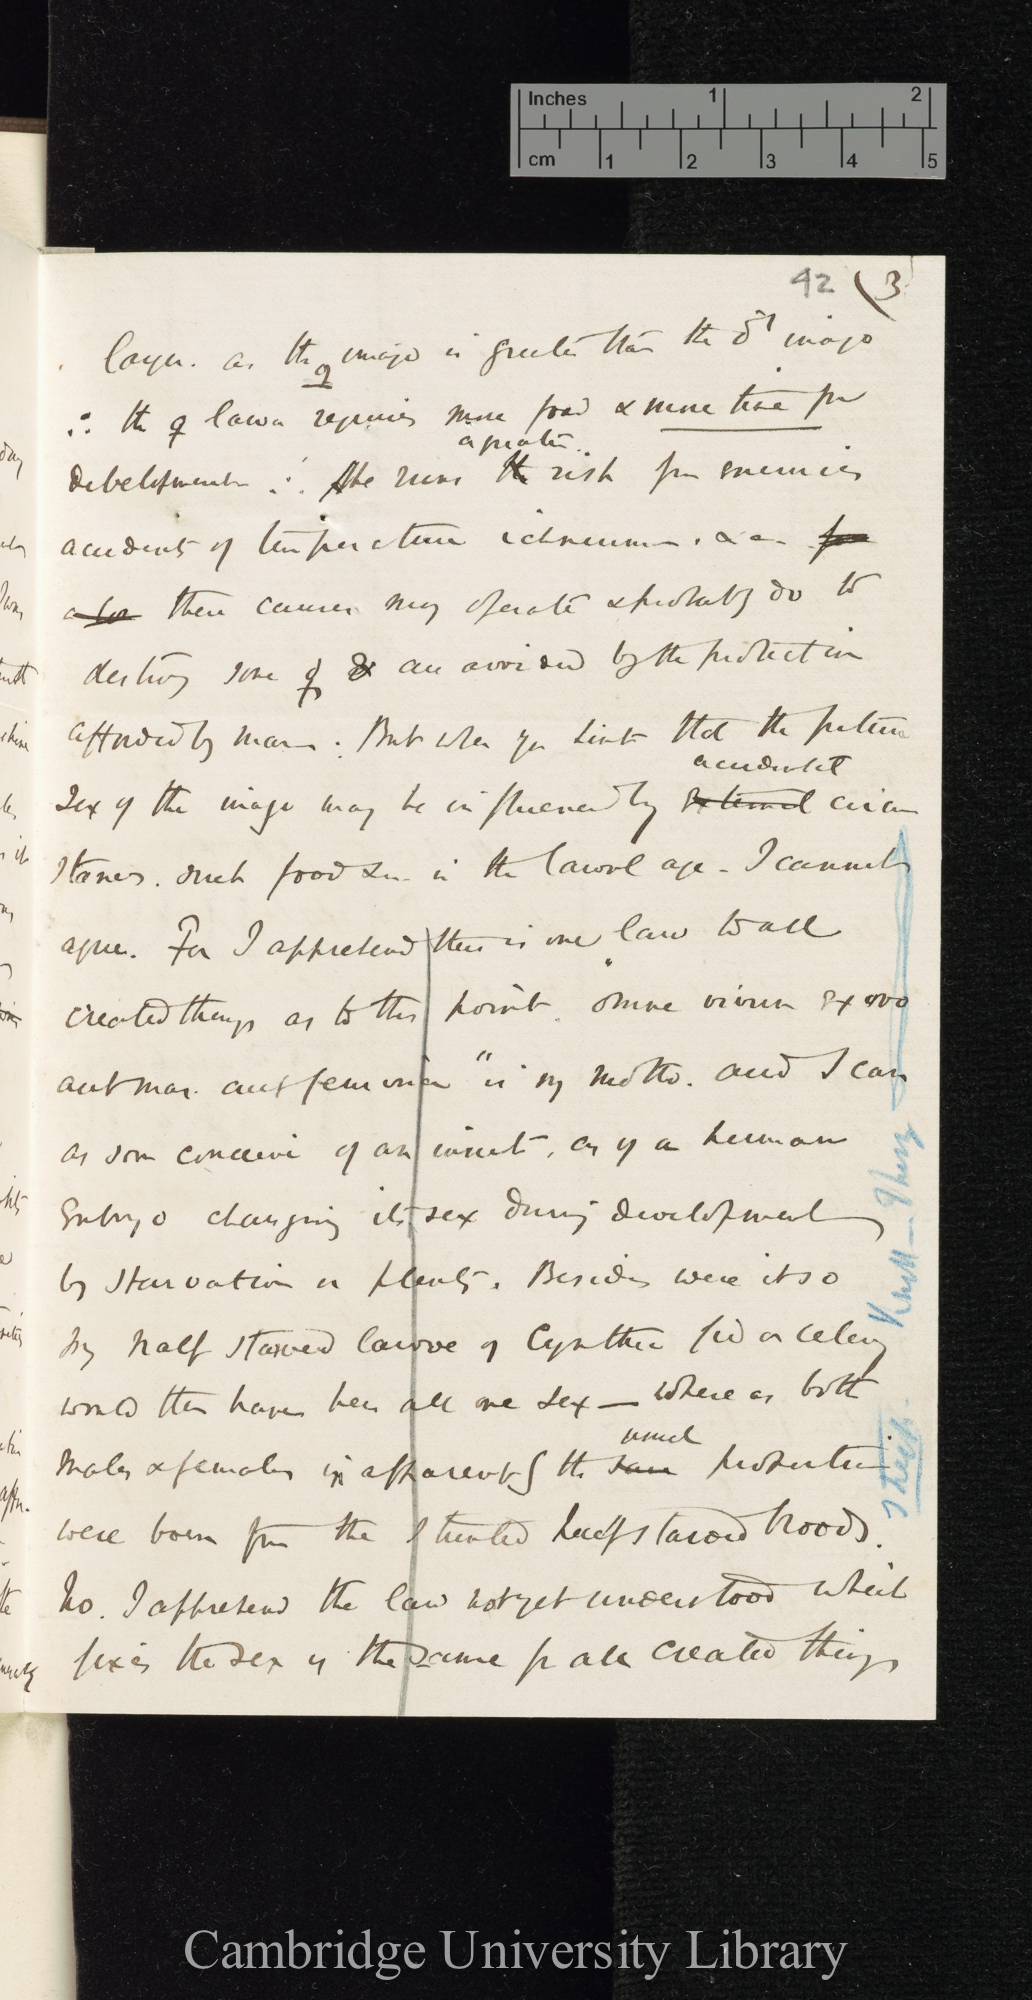 Inches 1 2
cm 1 2 3 4 5
42 (3
larger. as the ♀ imago is greater than the ♂ imago
∴ the ♀ larva requires more food & more time for
a greater
development ∴ she runs the risk from enemies
accidents of temperature ichneumon. &c
these causes may operate & probably do to
destroy some ♀ are avoided by the protection
afforded by man. But when you hint that the future
accidental
sex of the imago may be influenced by external circum
stances. such food &c in the larval age - I cannot
agree. For I apprehend there is one law to all
created things as to this point. "omne vivum ex ovo
aut mas. aut femina" is my motto. and I can
as soon conceive of an insect, as of a human
Embryo changing its sex during development
by starvation or plenty. Besides were it so
my half starved larvae of Cynthia fed on celery
would then have been all one sex — where as both
usual
males & females in apparently the same proportion
were born from the stunted half starved broods.
No. I apprehend the law not yet understood which
fixes the sex is the same for all created things
Sheep.
Cambridge University Library